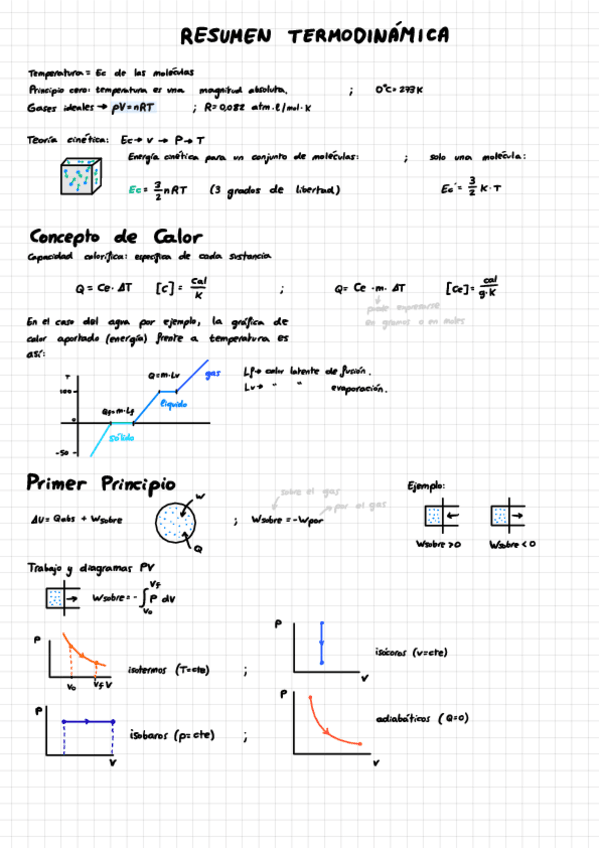 RESUMEN TERMODINÁMICA
Temperatura = Ec de las moléculas
Principio cero: temperatura es una magnitud absoluta. ; 0°C = 273K
Gases ideales → pV=nRT ; R=0,082 atm.l/mol.K
Teoría cinética: Ec → v → P → T
Energía cinética para un conjunto de moléculas: ; solo una molécula:
Ec = 3/2 nRT (3 grados de libertad) Ec = 3/2 K·T
Concepto de Calor
Capacidad calorífica: específica de cada sustancia
Q = Ce · ΔT [c] = cal/K ; Q = Ce · m · ΔT [Ce] = cal/g·K
puede expresarse
en gramos o en moles
En el caso del agua por ejemplo, la gráfica de
calor aportado (energía) frente a temperatura es
así:
T
100
0
-50
Qf=m·Lf
Q=m·Lv
sólido
líquido
gas
Lf → calor latente de fusión.
Lv → " " evaporación.
Primer Principio
ΔU = Qabs + Wsobre
W
Q
sobre el gas
; Wsobre = -Wpor
por el gas
Ejemplo:
Wsobre >0 Wsobre <0
Trabajo y diagramas PV
Wsobre = - ∫ Vo Vf P dV
P
Vo Vf V
isotermos (T=cte) ;
P
V
isócoros (v=cte)
P
V
isobaros (p=cte) ;
P
V
adiabáticos (Q=0)